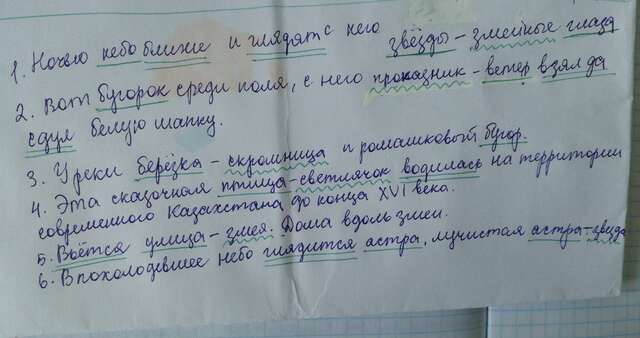 1. Ночью небо ближе и глядят с него звёзды - змеиные глаза
2. Вот бугорок среди поля, с него проказник - ветер взял да
сдул белую шапку.
3. У реки берёзка - скромница и ромашковый бугор.
4. Эта сказочная птица-светлячок водилась на территории
современного Казахстана до конца XVI века.
5. Вьётся улица - змея. Дома вдоль змеи.
6. В похолодевшее небо глядится астра, лучистая астра-звезда